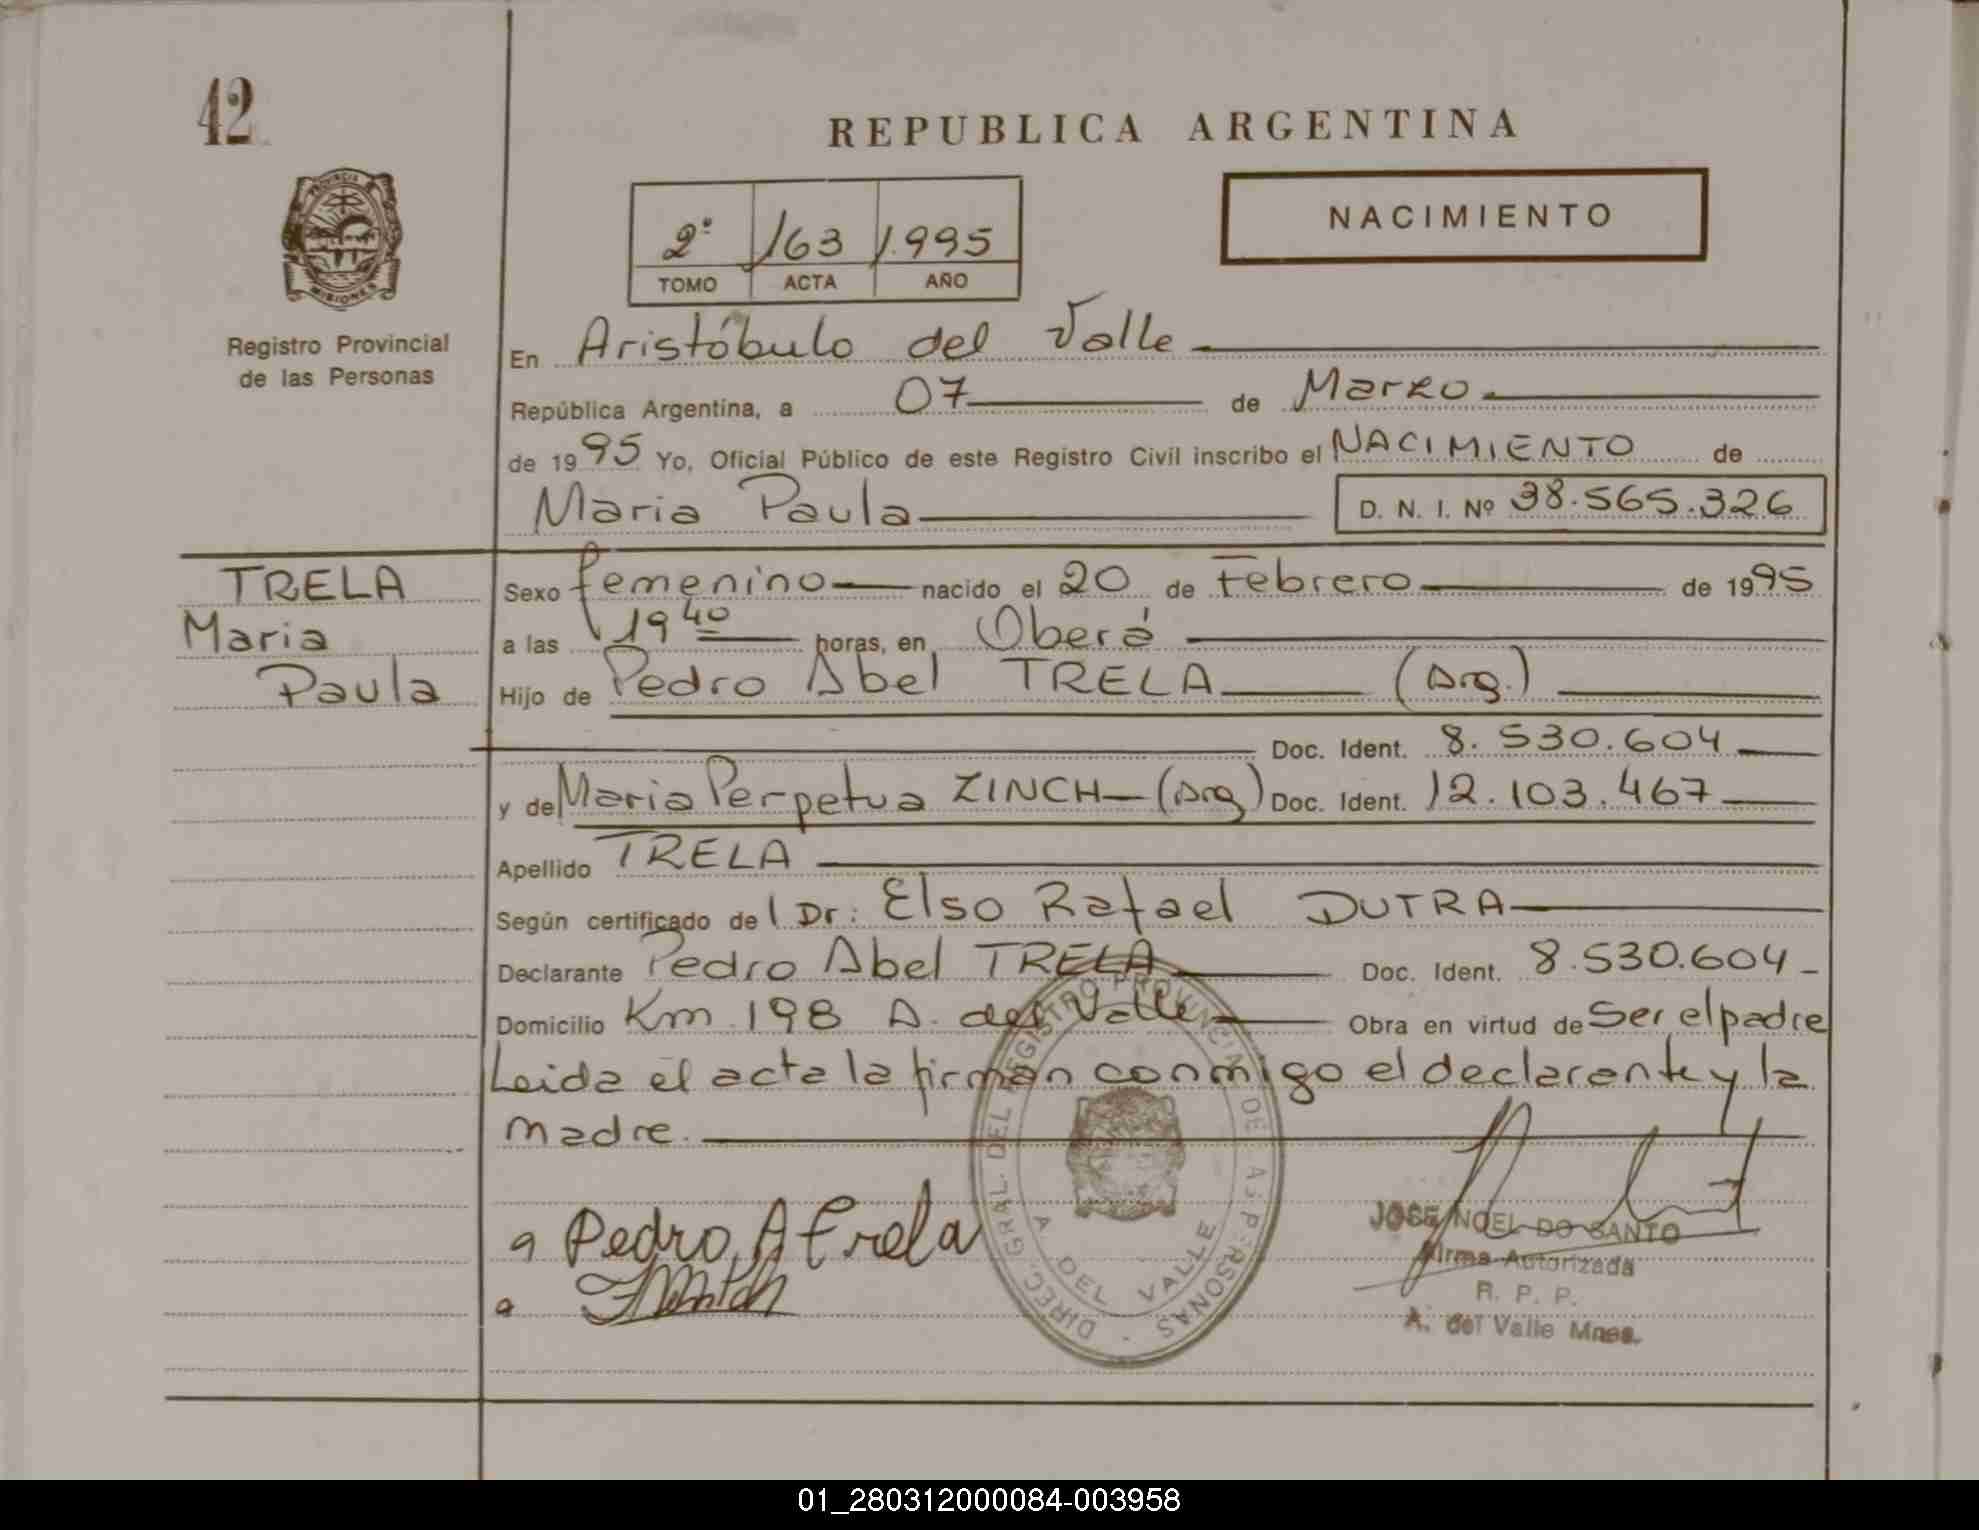 42
REPUBLICA ARGENTINA
PROVINCIA DE MISIONES
Registro Provincial
de las Personas
2º 163 1.995
TOMO ACTA AÑO
NACIMIENTO
En Aristóbulo del Valle
República Argentina, a 07 de Marzo
de 1995 Yo, Oficial Público de este Registro Civil inscribo el NACIMIENTO de
Maria Paula D. N. I. Nº 38.565.326
TRELA
Maria
Paula
Sexo femenino nacido el 20 de Febrero de 1995
a las 19 40 horas, en Oberá
Hijo de Pedro Abel TRELA (Arg.)
Doc. Ident. 8.530.604
y de Maria Perpetua ZINCH (Arg) Doc. Ident. 12.103.467
Apellido TRELA
Según certificado de l Dr: Elso Rafael DUTRA
Declarante Pedro Abel TRELA Doc. Ident. 8.530.604
Domicilio Km 198 A. del Valle Obra en virtud de Ser el padre
Leida el acta la firman conmigo el declarante y la
madre.
a Pedro A trela
a
DIREC. GRAL. DEL REGISTRO PROVINCIAL DE LAS PERSONAS
A DEL VALLE
JOSE NOEL DO SANTO
Firma Autorizada
R. P. P.
A. del Valle Mnes.
01_280312000084-003958